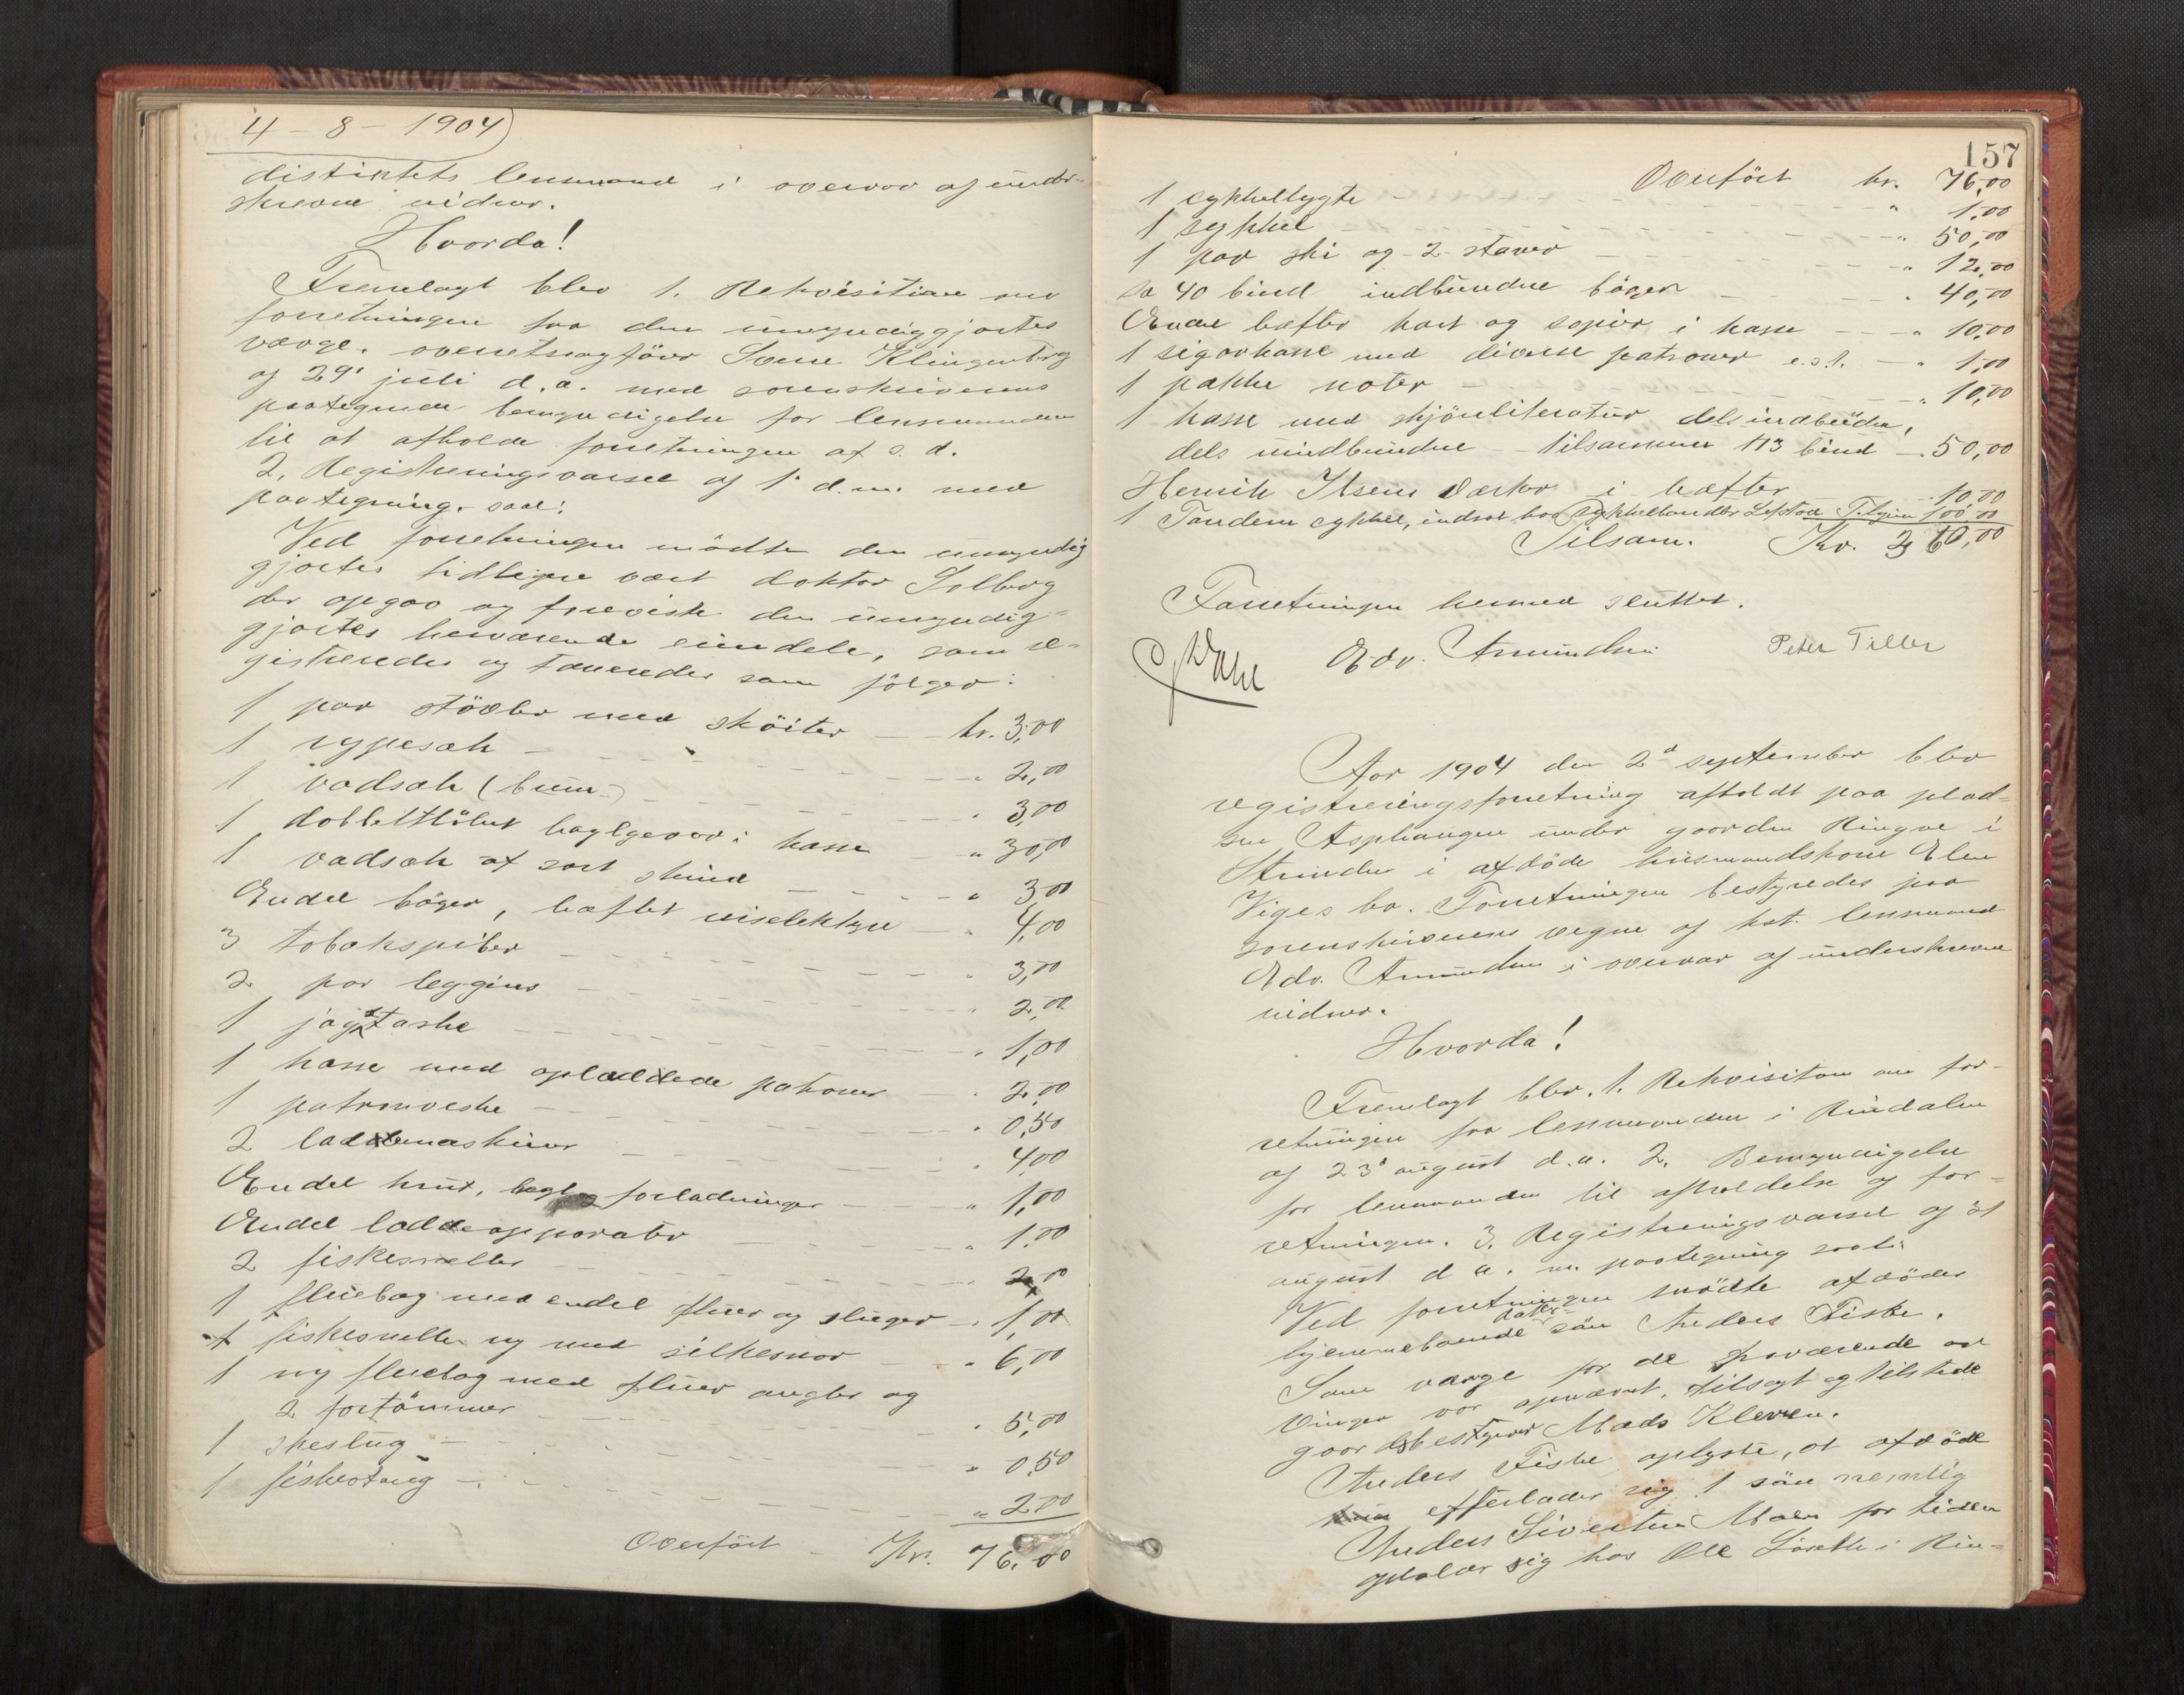 4 - 8 - 1904)
distriktets lensmand i overvær af under-
skrevne vidner.
Hvorda!
Fremlagt blev 1. Rekvisition om
forretningen fra den umyndiggjortes
værge, overretssagfører Sverre Klingenberg
af 29' juli d.a. med sorenskriverens
paategnede bemyndigelse for lensmanden
til at afholde forretningen af s. d.
2. Registreringsvarsel af 1' d.m. med
paategning. saal:
Ved forretningen mødte den umyndig
gjortes tidligere vært doktor Solberg
der opgav og foreviste den umyndig-
gjortes herværende eiendele, som re-
gistreredes og taxeredes som følger:
1 par støvler med skøiter - kr. 3,00
1 rypesæk - " 2,00
1 vadsæk (brun) - " 3,00
1 dobbeltløbet haglgevær i kasse - " 30,00
1 vadsæk af sort skind - " 3,00
Endel bøger, hæftet reiselektyre - " 4,00
3 tobakspiber - " 3,00
2 par leggins - " 2,00
1 jagttaske - " 1,00
1 kasse med opladede patroner - " 2,00
1 patronveske - " 0,50
2 lademaskiner - " 4,00
Endel krut, hagl og forladninger - " 1,00
Endel ladeapparater - " 1,00
2 fiskesneller - " 2,00
1 fluebog med endel fluer og sluger - " 1,00
1 fiskesnelle ny med silkesnor - " 6,00
1 ny fluebog med fluer angler og
2 fortømmer - " 5,00
1 skeslug - " 0,50
1 fiskestang - " 2,00
Overført - Kr. 76,00
157
Overført kr. 76,00
1 cykkellygte - " 1,00
1 sykkel - " 50,00
1 par ski og 2 staver - " 12,00
ca 40 bind indbundne bøger - " 40,00
Endel hæfter kart og papir i kasse - " 10,00
1 sigarkasse med diverse patroner e.s.l. - " 1,00
1 pakke noter - " 10,00
1 kasse med skjønliteratur dels indbundne,
dels uindbundne - tilsammen 113 bind - 50,00
Henrik Ibsens Værker i hæfter - 10,00
1 Tandem cykkel, indsat hos Cykkelhandler Tilsam. Kr. 360,00
Forretningen hermed sluttet.
Edv. Amundsen Peter Tiller
Aar 1904 den 2d september blev
registreringsforretning afholdt paa plad-
sen Asphaugen under gaarden Ringve i
Strinden i afdøde husmandskone Elen
Viges bo. Forretningen bestyredes paa
sorenskriverens vegne af kst. lensmand
Edv. Amundsen i overvær af underskrevne
vidner.
Hvorda!
Fremlagt blev. 1. Rekvisition om for-
retningen fra lensmanden i Rindalen
af 23' august d.a. 2. Bemyndigelse
for lensmanden til afholdelse af for-
retningen. 3. Registreringsvarsel af
august d a. m. paategning saal:
Ved forretningen mødte afdødes
hjemmeboende søn Anders Fiske.
Som værge for de fraværende ar
vinger var opnævnt, tilsagt og tilstede
gaardsbestyrer Mads Kleven.
Anders Fiske oplyste, at afdøde
efterlader sig 1 søn nemlig
Anders Sivertsen Moen for tiden
opholder sig hos Ole Løseth i Rin-